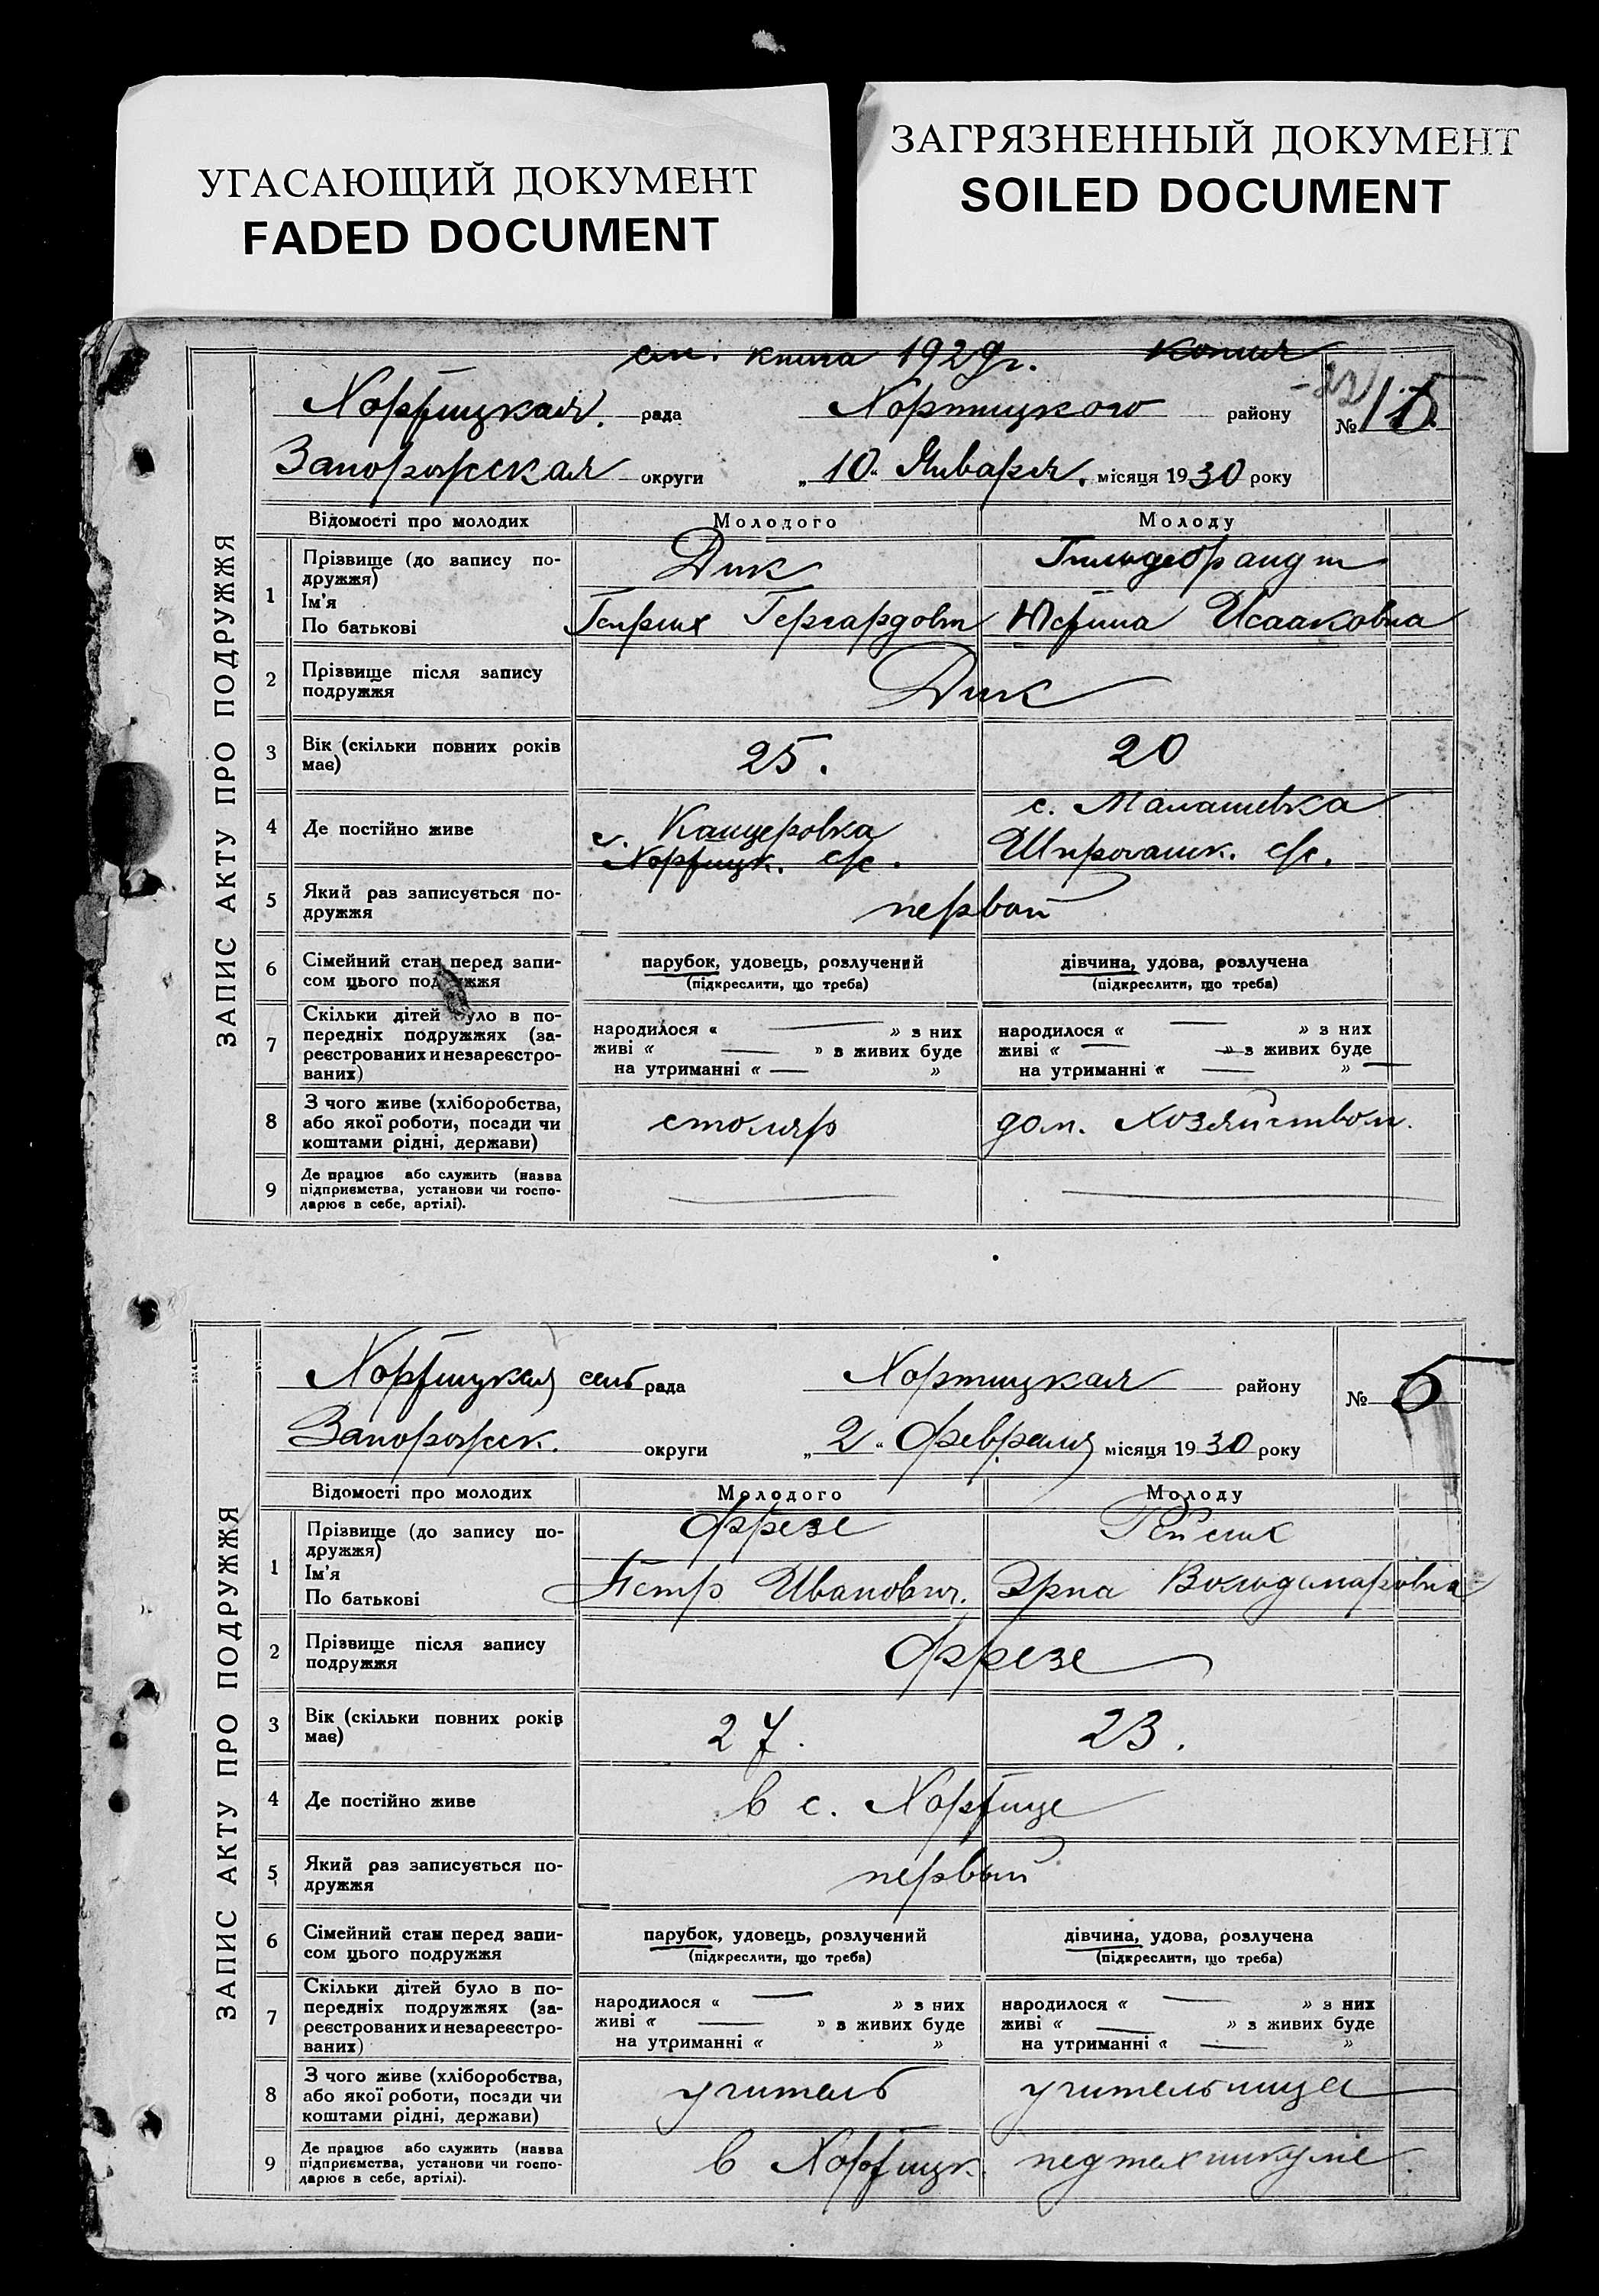 УГАСАЮЩИЙ ДОКУМЕНТ
FADED DOCUMENT
ЗАГРЯЗНЕННЫЙ ДОКУМЕНТ
SOILED DOCUMENT
см. книга 1929г. Копия
Хортицкая рада Хортицкого району № 15
Запорожская округи „10“ Января місяця 1930 року
ЗАПИС АКТУ ПРО ПОДРУЖЖЯ
Відомості про молодих Молодого Молоду
1 Прізвище (до запису по-
дружжя) Дик Гильдебрандт
Ім'я
По батькові Генрих Гергардовт Исааковна
2 Прізвище після запису
подружжя Дик
3 Вік (скільки повних років
має) 25. 20
4 Де постійно живе с. Канцеровка с. Малашевка
Хортицк. с/с. Широчанск. с/с.
5 Який раз записується по-
дружжя первой
6 Сімейний стан перед запи-
сом цього подружжя парубок, удовець, розлучений дівчина, удова, розлучена
(підкреслити, що треба) (підкреслити, що треба)
7 Скільки дітей було в по-
передніх подружжях (за-
реєстрованих и незареєстро-
ваних)
народилося « » з них народилося « » з них
живі « » з живих буде живі « » з живих буде
на утриманні « » на утриманні « »
8 З чого живе (хліборобства,
або якої роботи, посади чи
коштами рідні, держави) столяр дом. хозяйством.
9 Де працює або служить (назва
підприємства, установи чи госпо-
дарює в себе, артілі).
Хортицкая сель рада Хортицкая району № 5
Запорожск. округи „2“ Февраля місяця 1930 року
ЗАПИС АКТУ ПРО ПОДРУЖЖЯ
Відомості про молодих Молодого Молоду
1 Прізвище (до запису по-
дружжя) Фрезе
Ім'я
По батькові Петр Иванович. Эрна Вольдемаровна
2 Прізвище після запису
подружжя Фрезе
3 Вік (скільки повних років
має) 27. 23.
4 Де постійно живе в с. Хортице
5 Який раз записується по-
дружжя первый
6 Сімейний стан перед запи-
сом цього подружжя парубок, удовець, розлучений дівчина, удова, розлучена
(підкреслити, що треба) (підкреслити, що треба)
7 Скільки дітей було в по-
передніх подружжях (за-
реєстрованих и незареєстро-
ваних)
народилося « » з них народилося « » з них
живі « » з живих буде живі « » з живих буде
на утриманні « » на утриманні « »
8 З чого живе (хліборобства,
або якої роботи, посади чи
коштами рідні, держави) учитель учительница
9 Де працює або служить (назва
підприємства, установи чи госпо-
дарює в себе, артілі). в Хортицк. педтехникуме.